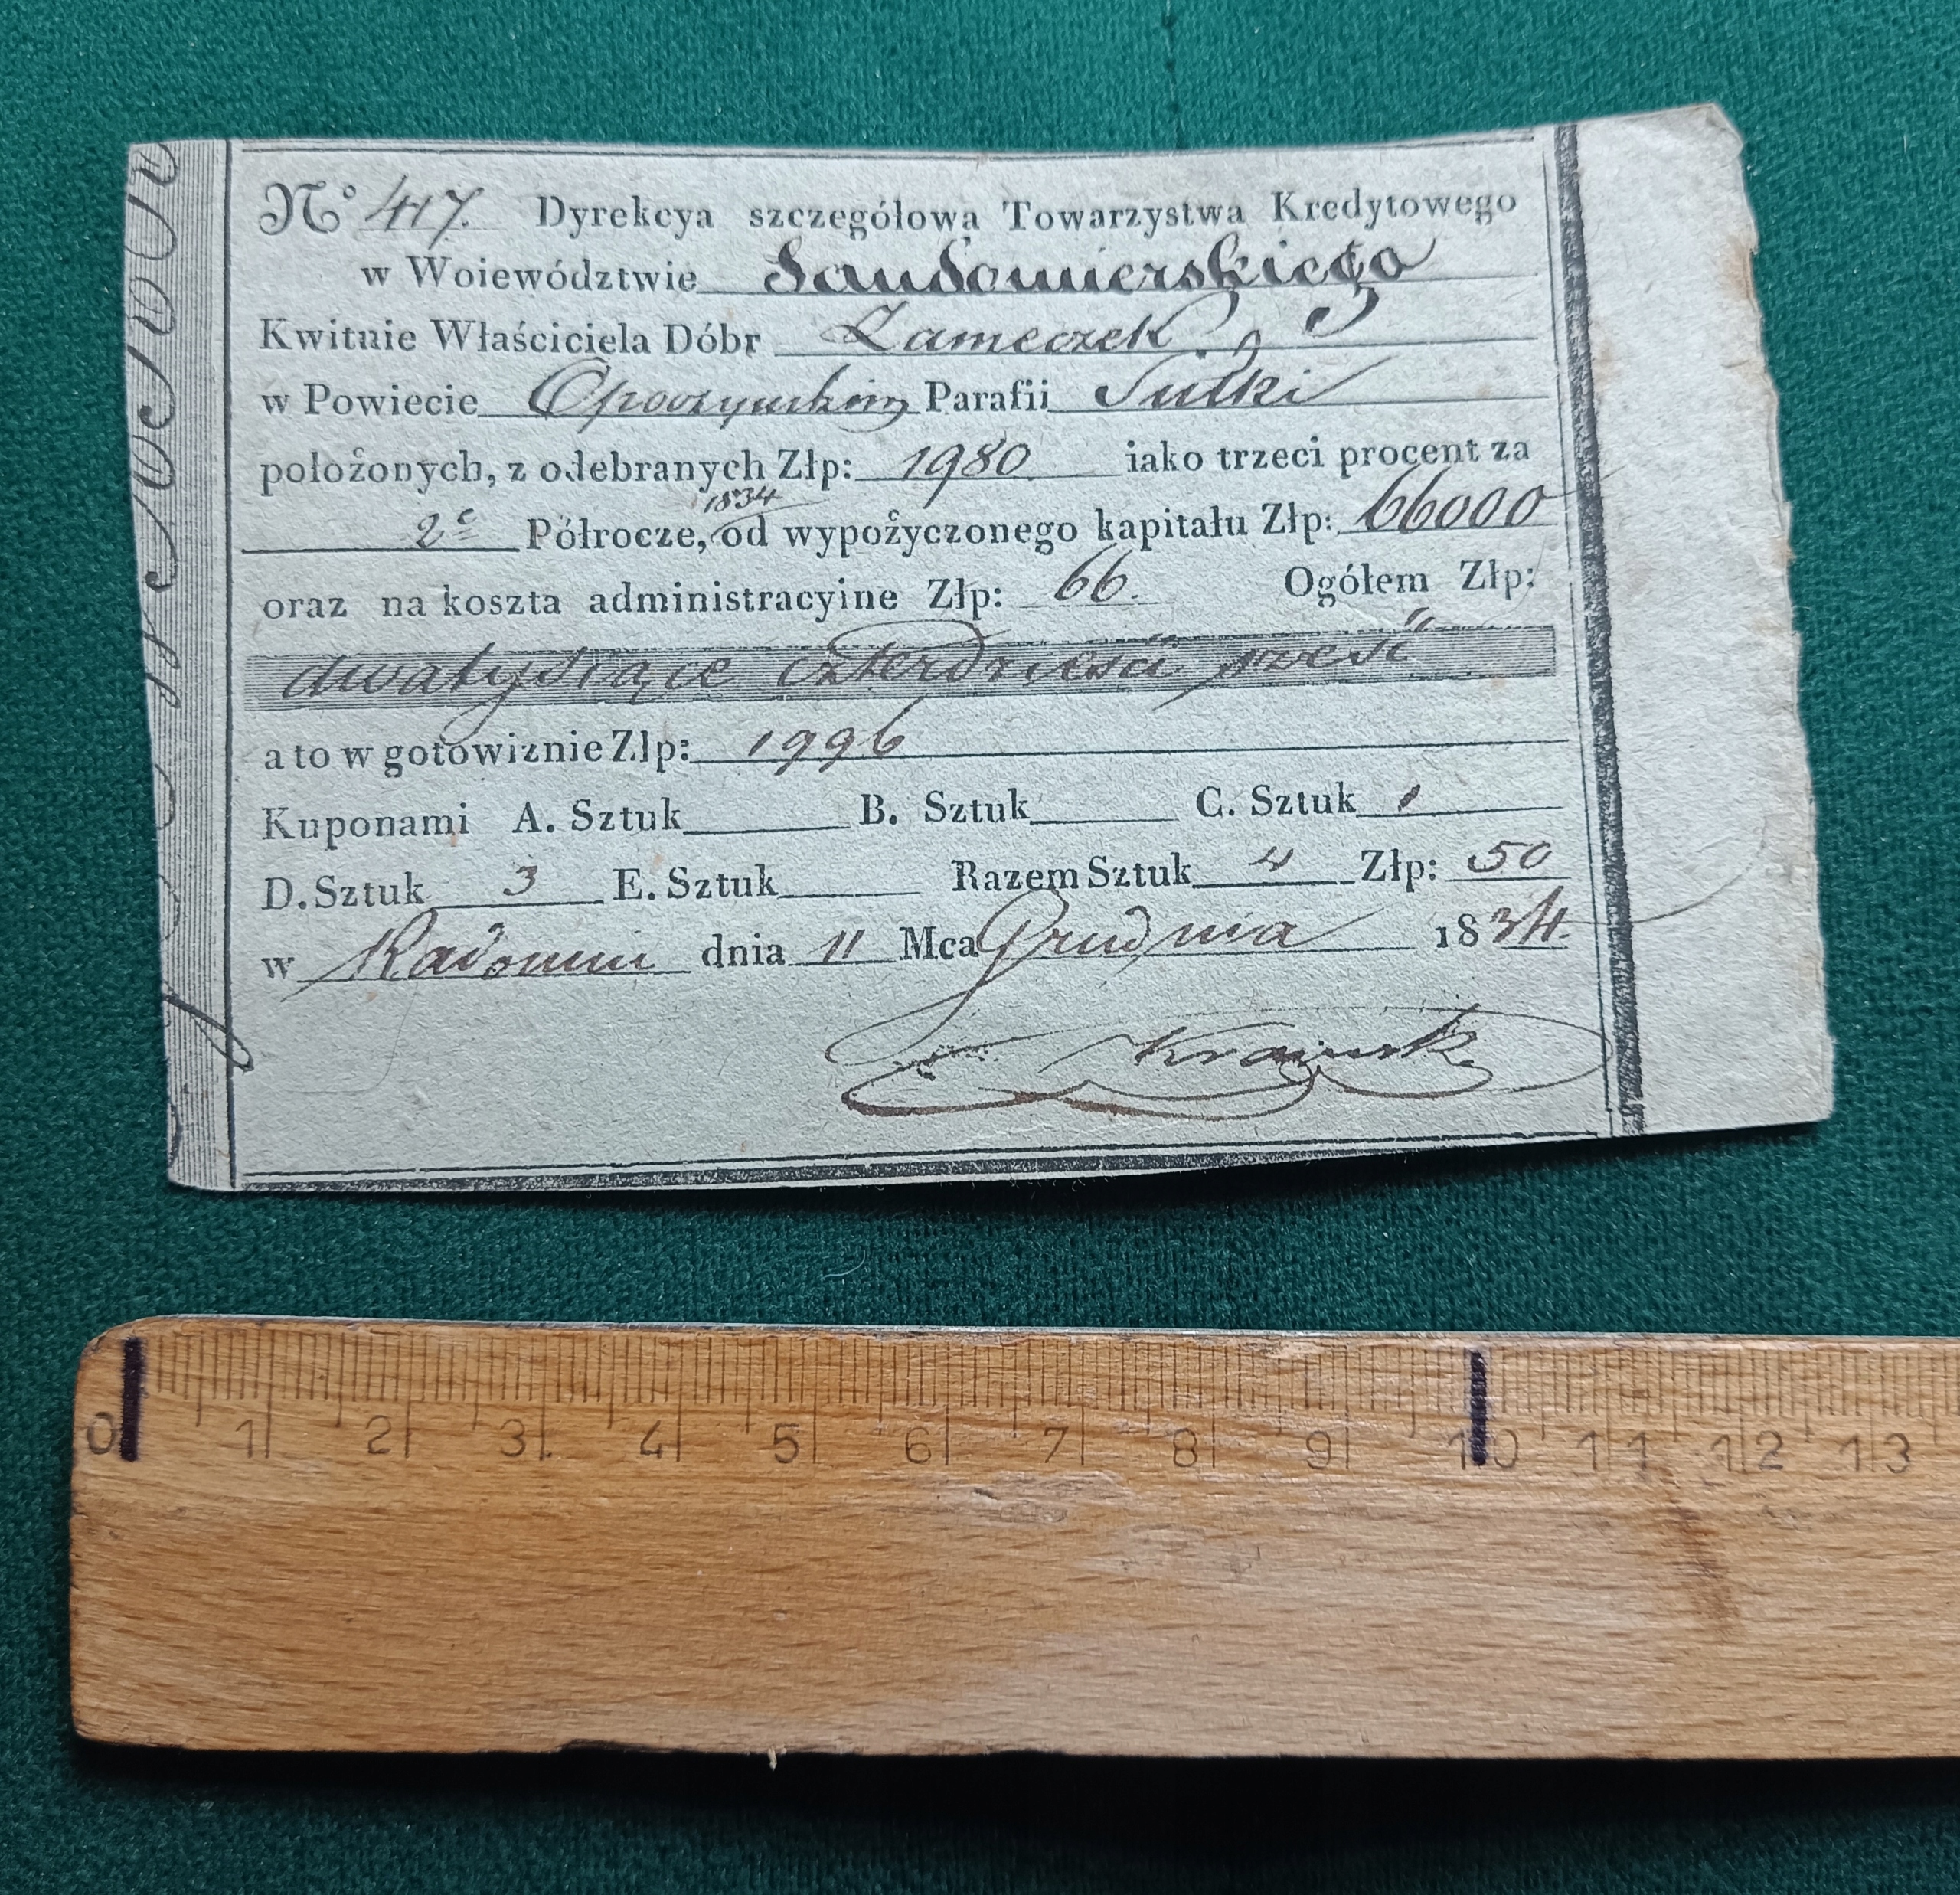 Nº 417. Dyrekcya szczegółowa Towarzystwa Kredytowego
w Woiewództwie Sandomierskiego
Kwituie Właściciela Dóbr Zameczek
w Powiecie Opoczyńskim Parafii
położonych, z odebranych Złp: 1980 iako trzeci procent za
1834
2e Półrocze, od wypożyczonego kapitału Złp: 66000
oraz na koszta administracyine Złp: 66. Ogółem Złp:
dwatysiące czterdzieści sześć
a to w gotowiznie Złp: 1996
Kuponami A. Sztuk B. Sztuk C. Sztuk 1
D. Sztuk 3 E. Sztuk Razem Sztuk 4 Złp: 50
w Radomiu dnia 11 Mca Grudnia 1834.
0 1 2 3 4 5 6 7 8 9 10 11 12 13